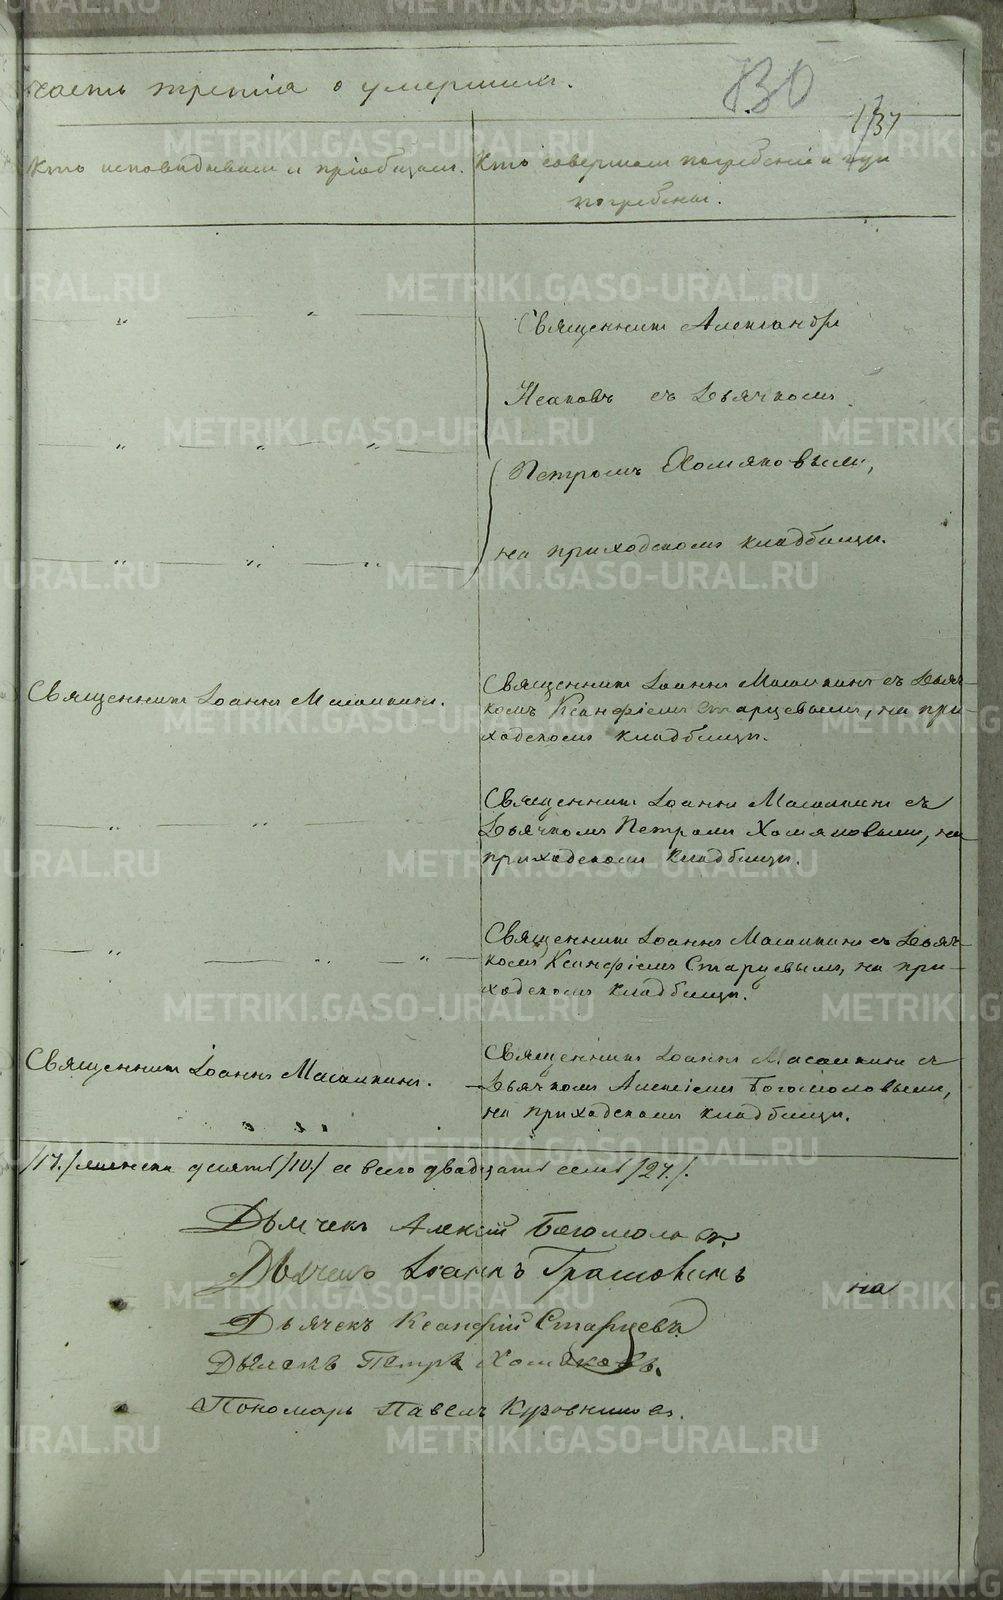 часть третія о умершихъ.
130
137
Кто исповѣдывалъ и пріобщалъ.
Кто совершалъ погребеніе и гдѣ
погребены.
Священникъ Александръ
Исаковъ съ дьячкомъ
Петромъ Хомяковымъ,
на приходскомъ кладбищѣ.
Священникъ Іоаннъ
Священникъ Іоаннъ съ дьяч-
комъ Ксанфіемъ Старцевымъ, на при-
ходскомъ кладбищѣ.
Священникъ Іоаннъ съ
дьячкомъ Петромъ Хомяковымъ, на
приходскомъ кладбищѣ.
Священникъ Іоаннъ съ дьяч-
комъ Ксанфіемъ Старцевымъ, на при-
ходскомъ кладбищѣ.
Священникъ Іоаннъ
Священникъ Іоаннъ съ
дьячкомъ Алексіемъ Богомоловымъ,
на приходскомъ кладбищѣ.
/17./ женска десять /10./ а всего двадцать семь /27./.
Дьячекъ Алексій Богомоловъ.
Дьячекъ Іоаннъ
на
Дьячекъ Ксанфій Старцевъ
Дьячекъ Петръ Хомяковъ.
Пономарь Павелъ
METRIKI.GASO-URAL.RU